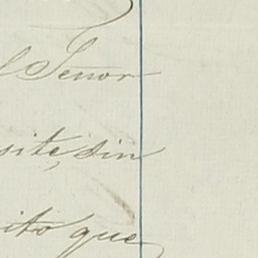 l Señor
site, sin
ito que